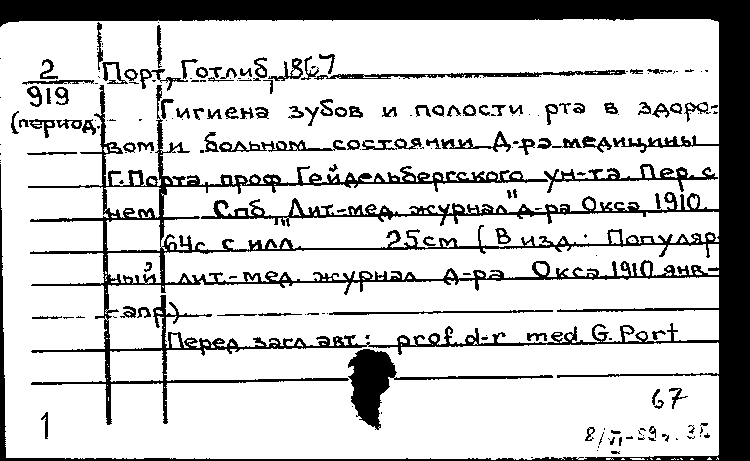 2
919
(период.)
Порт, Готлиб, 1867
Гигиена зубов и полости рта в здоро-
вом и больном состоянии Д-ра медицины
Г. Порта, проф Гейдельбергского ун-та. Пер. с
нем. Спб, "Лит-мед. журнал" д-ра Окса, 1910.
64с с илл. 25см (В изд.: Популяр-
ный лит.-мед. журнал д-ра Окса. 1910 янв.-
-апр.).
Перед загл. авт.: prof. d-r med. G. Port
67
1